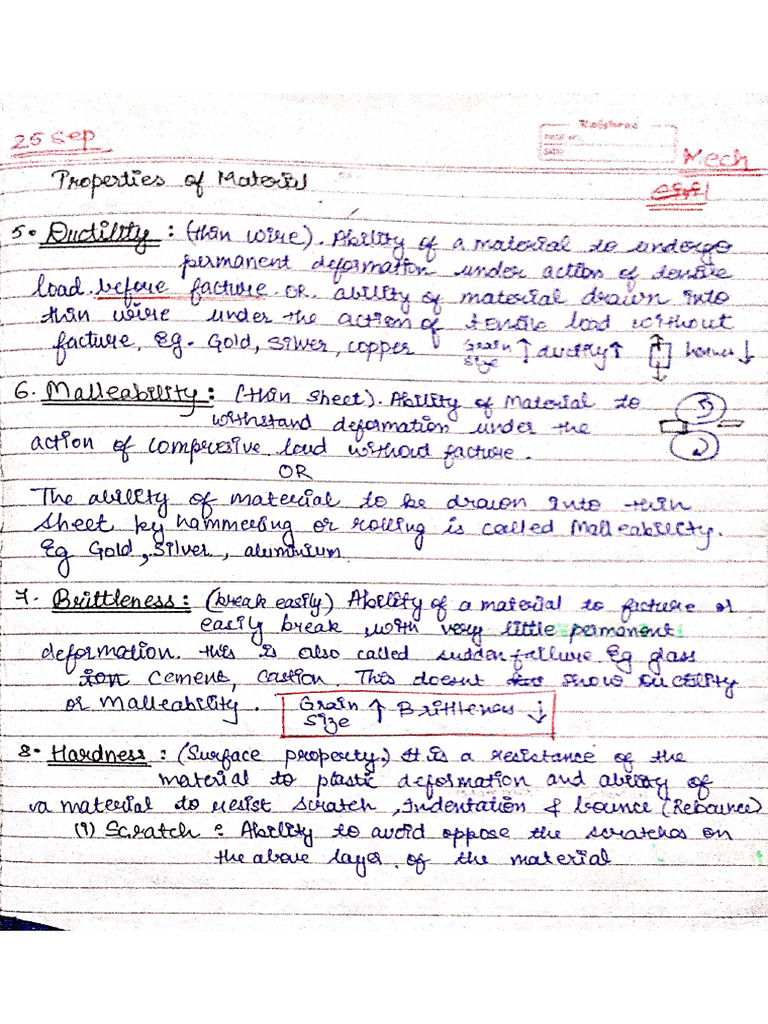 25 Sep
Mech
Properties of Material
5. Ductility : (thin wire). Ability of a material to undergo
permanent deformation under action of tensile
load. before facture or ability of material drawn into
thin wire under the action of tensile load without
facture, Eg. Gold, silver, copper Grain Size ↑ ductility ↑ ↓
6. Malleability : (thin sheet). Ability of Material to
withstand deformation under the
action of compresive load without facture.
OR
The ability of material to be drawn into thin
sheet by hammering or rolling is called Malleability.
Eg Gold, silver, aluminium
7. Brittleness : (break easily) Ability of a material to facture or
easily break with very little permanent
deformation. this is also called sudden failure Eg glass
cement, castion. This doesnt show ductility
or malleability. Grain Size ↑ Brittleness ↓
8. Hardness : (Surface property.) It is a resistance of the
material to plastic deformation and ability of
a material to resist scratch, Indentation & bounce (Rebounce)
(1) Scratch : Ability to avoid oppose the scratches on
the above layer of the material